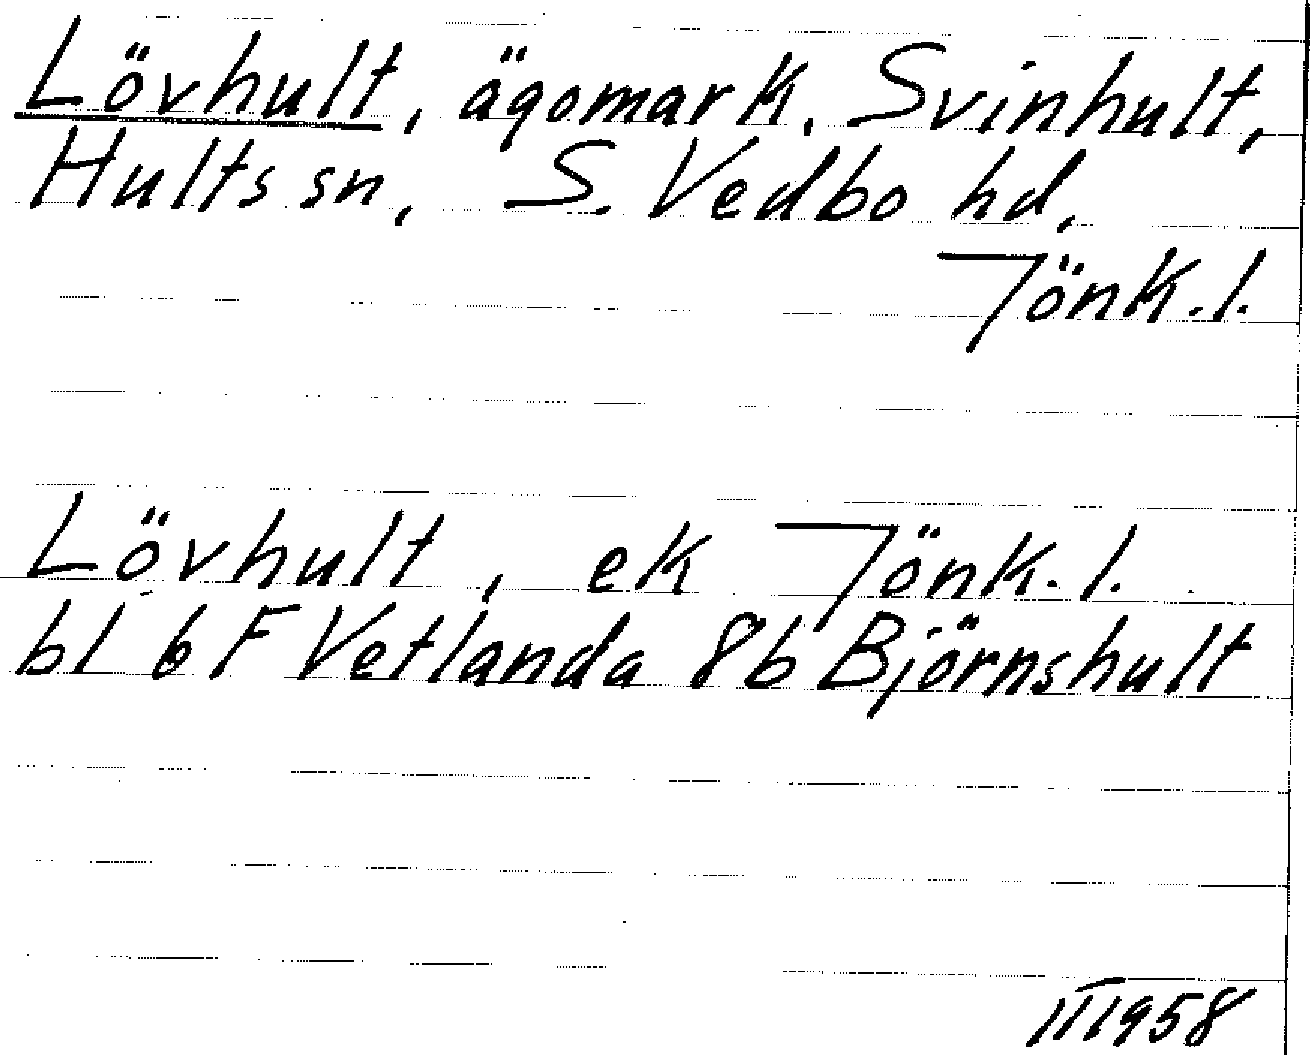 Lövhult, ägomark, Svinhult,
Hults sn, S. Vedbo hd,
Jönk. l.
Lövhult, ek Jönk. l.
bl 6 F Vetlanda 8b Björnshult
III 1958